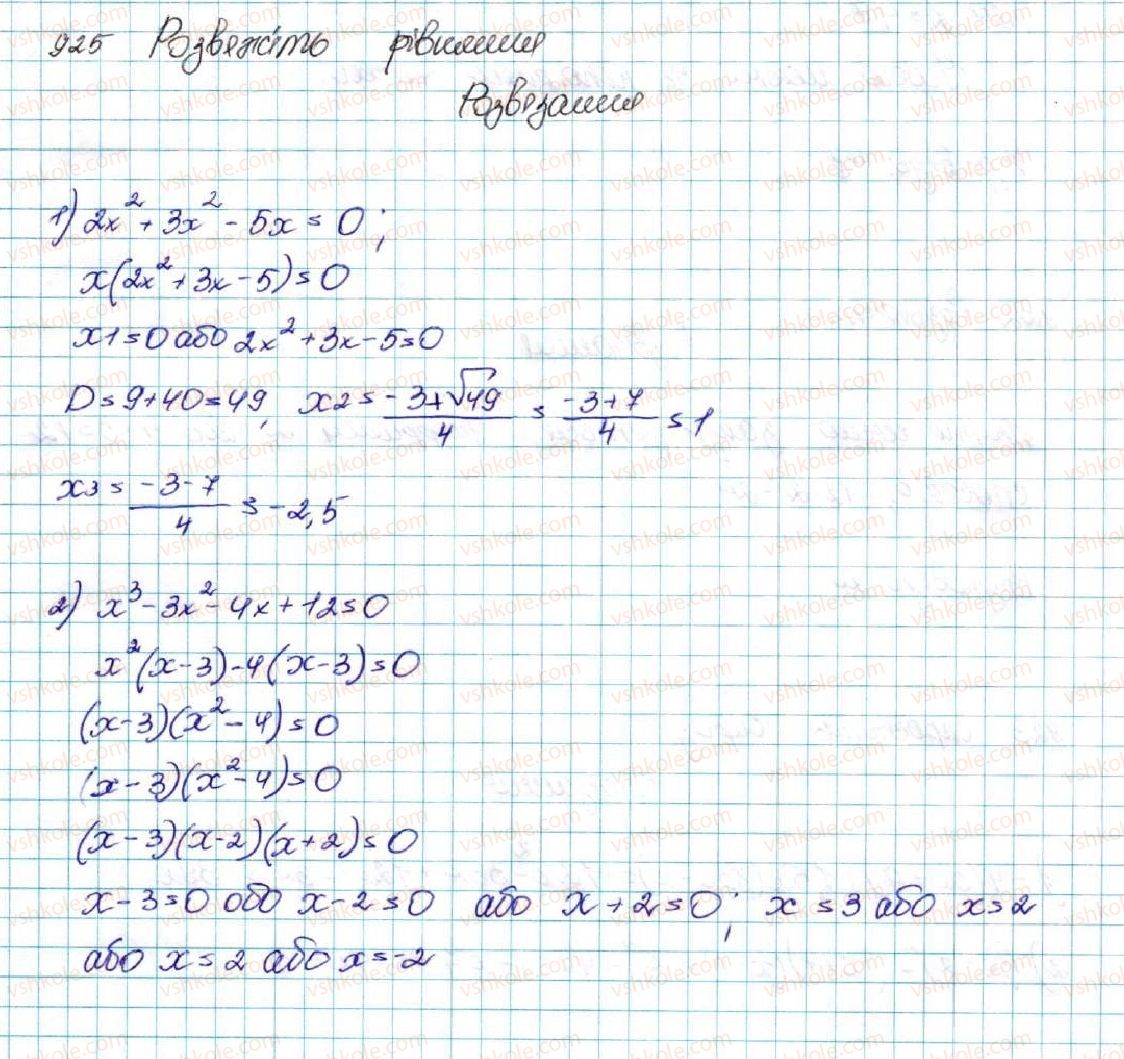 925 Розвяжіть рівняння
Розвязання
1) 2x² + 3x² - 5x = 0;
x(2x² + 3x - 5) = 0
x1 = 0 або 2x² + 3x - 5 = 0
D = 9 + 40 = 49, x2 = (-3+√49)/4 = (-3+7)/4 = 1
x3 = (-3-7)/4 = -2,5
2) x³ - 3x² - 4x + 12 = 0
x²(x - 3) - 4(x - 3) = 0
(x - 3)(x² - 4) = 0
(x - 3)(x² - 4) = 0
(x - 3)(x - 2)(x + 2) = 0
x - 3 = 0 або x - 2 = 0 або x + 2 = 0; x = 3 або x = 2
або x = 2 або x = -2